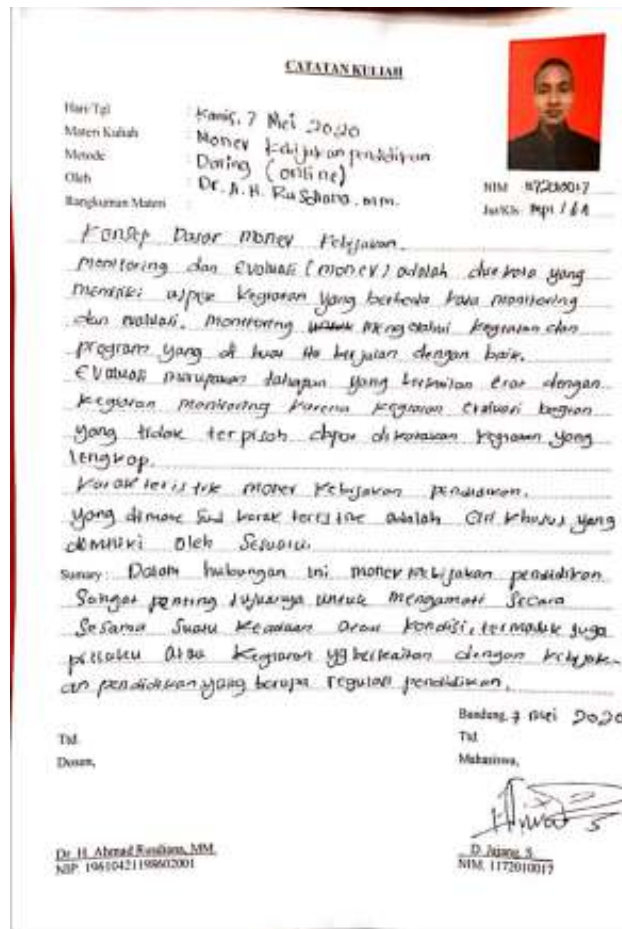 CATATAN KULIAH
Hari/Tgl : Kamis, 7 Mei 2020
Materi Kuliah : Monev Kebijakan pendidikan
Metode : Daring (online)
Oleh : Dr. A. H. Rusdiana. MM.
Rangkuman Materi :
NIM 1172010017
Jur/Kls MPI / 6A
Konsep Dasar monev kebijakan.
monitoring dan Evaluasi (monev) adalah dua kata yang
memiliki aspek kegiatan yang berbeda kata monitoring
dan evaluasi. monitoring mengetahui kegiatan dan
program yang di buat itu berjalan dengan baik.
Evaluasi merupakan tahapan yang berkaitan erat dengan
kegiatan monitoring karena kegiatan evaluasi bagian
yang tidak terpisah dapat dikatakan kegiatan yang
lengkap.
karakteristik monev kebijakan pendidikan.
yang dimaksud karakteristik adalah ciri khusus yang
dimiliki oleh sesuatu.
Sumary: Dalam hubungan ini monev kebijakan pendidikan
sangat penting tujuannya untuk mengamati secara
sesama suatu keadaan atau kondisi, termasuk juga
prilaku atau kegiatan yg berkaitan dengan kebijak-
an pendidikan yang berupa regulasi pendidikan.
Bandung, 7 Mei 2020
Ttd. Ttd
Dosen, Mahasiswa,
Dr. H. Ahmad Rusdiana, MM. D. Jajang. S.
NIP. 19610421198602001 NIM. 1172010017